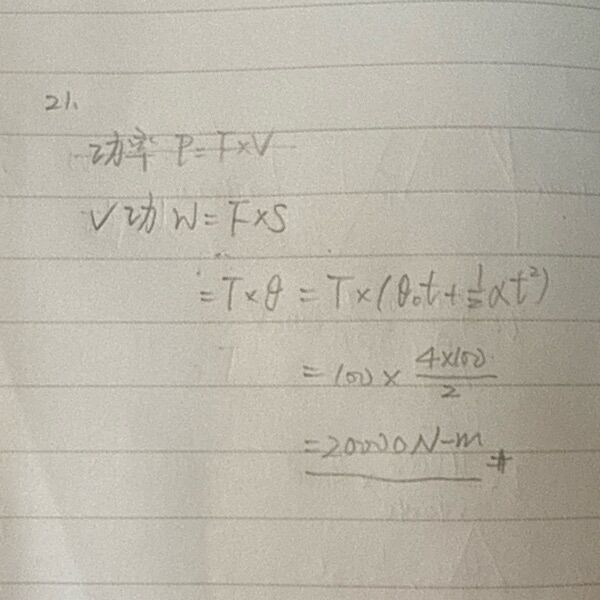 21.
功率 P=F×V
√功 W=F×S
=T×θ=T×(θ₀t+½αt²)
=100×\frac{4×100}{2}
=20000N-m #